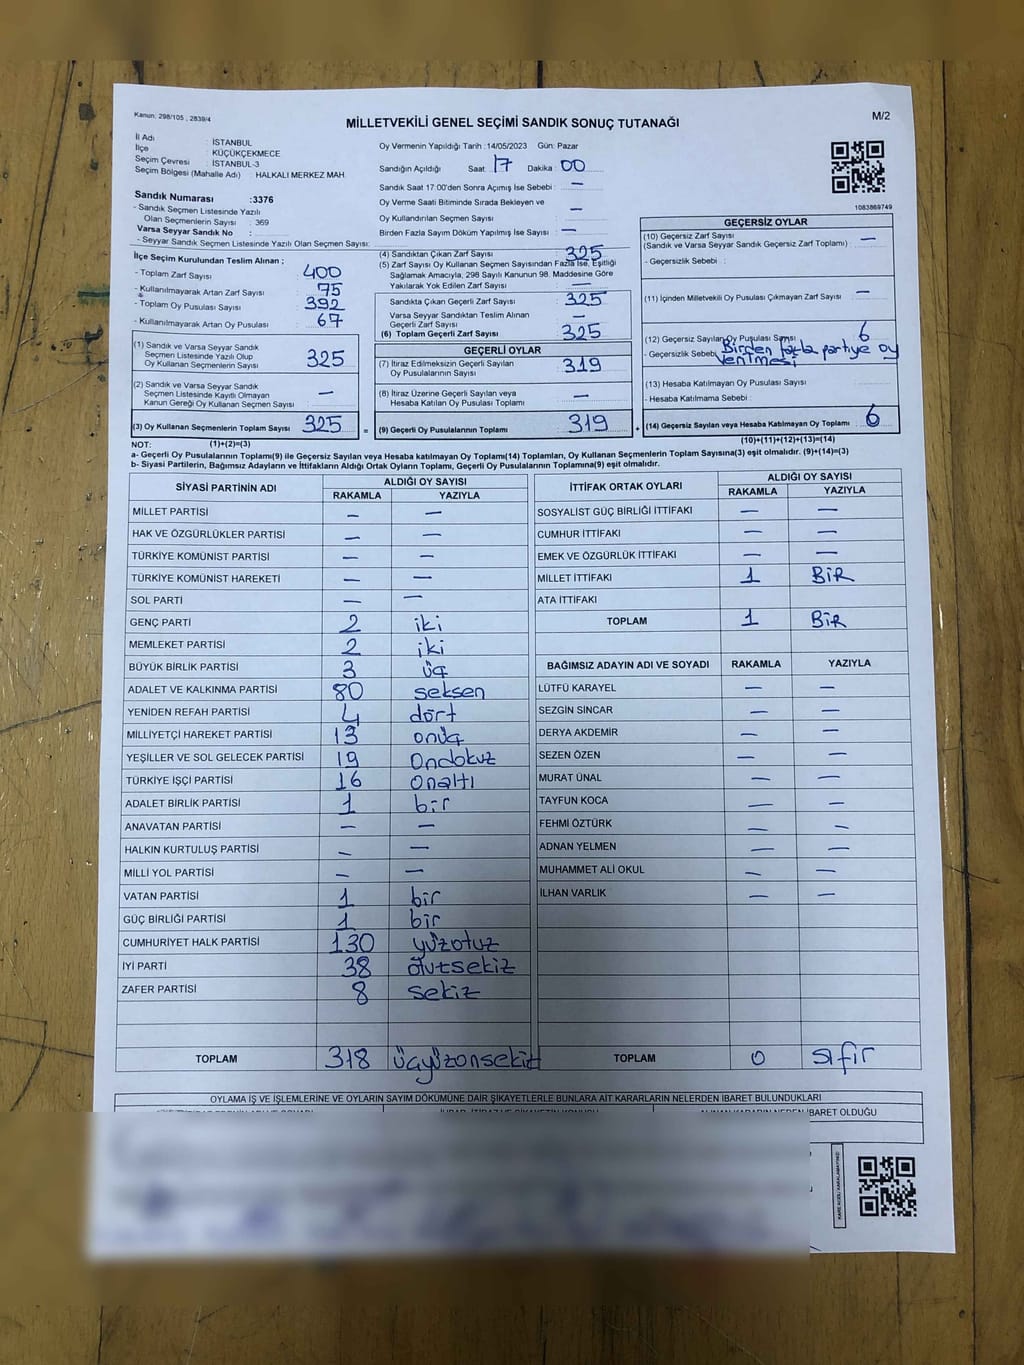 Kanun: 298/105 , 2839/4
MİLLETVEKİLİ GENEL SEÇİMİ SANDIK SONUÇ TUTANAĞI
M/2
İl Adı : İSTANBUL
İlçe : KÜÇÜKÇEKMECE
Seçim Çevresi : İSTANBUL-3
Seçim Bölgesi (Mahalle Adı) HALKALI MERKEZ MAH.
Sandık Numarası :3376
- Sandık Seçmen Listesinde Yazılı
Olan Seçmenlerin Sayısı : 369
Varsa Seyyar Sandık No :
- Seyyar Sandık Seçmen Listesinde Yazılı Olan Seçmen Sayısı:
Oy Vermenin Yapıldığı Tarih : 14/05/2023 Gün: Pazar
Sandığın Açıldığı Saat : 17 Dakika : 00
Sandık Saat 17:00'den Sonra Açımış İse Sebebi : —
Oy Verme Saati Bitiminde Sırada Bekleyen ve
Oy Kullandırılan Seçmen Sayısı : —
Birden Fazla Sayım Döküm Yapılmış İse Sayısı : —
1083869749
İlçe Seçim Kurulundan Teslim Alınan ;
- Toplam Zarf Sayısı : 400
- Kullanılmayarak Artan Zarf Sayısı : 75
- Toplam Oy Pusulası Sayısı : 392
- Kullanılmayarak Artan Oy Pusulası : 67
(1) Sandık ve Varsa Seyyar Sandık
Seçmen Listesinde Yazılı Olup
Oy Kullanan Seçmenlerin Sayısı : 325
(2) Sandık ve Varsa Seyyar Sandık
Seçmen Listesinde Kayıtlı Olmayan
Kanun Gereği Oy Kullanan Seçmen Sayısı : —
(3) Oy Kullanan Seçmenlerin Toplam Sayısı : 325
(4) Sandıktan Çıkan Zarf Sayısı : 325
(5) Zarf Sayısı Oy Kullanan Seçmen Sayısından Fazla İse, Eşitliği
Sağlamak Amacıyla, 298 Sayılı Kanunun 98. Maddesine Göre
Yakılarak Yok Edilen Zarf Sayısı : —
Sandıkta Çıkan Geçerli Zarf Sayısı : 325
Varsa Seyyar Sandıktan Teslim Alınan
Geçerli Zarf Sayısı : —
(6) Toplam Geçerli Zarf Sayısı : 325
GEÇERLİ OYLAR
(7) İtiraz Edilmeksizin Geçerli Sayılan
Oy Pusulalarının Sayısı : 319
(8) İtiraz Üzerine Geçerli Sayılan veya
Hesaba Katılan Oy Pusulası Toplamı : —
= (9) Geçerli Oy Pusulalarının Toplamı : 319
GEÇERSİZ OYLAR
(10) Geçersiz Zarf Sayısı : —
(Sandık ve Varsa Seyyar Sandık Geçersiz Zarf Toplamı)
- Geçersizlik Sebebi :
(11) İçinden Milletvekili Oy Pusulası Çıkmayan Zarf Sayısı : —
(12) Geçersiz Sayılan Oy Pusulası Sayısı : 6
- Geçersizlik Sebebi : Birden fazla partiye oy
verilmesi
(13) Hesaba Katılmayan Oy Pusulası Sayısı :
- Hesaba Katılmama Sebebi :
+ (14) Geçersiz Sayılan veya Hesaba Katılmayan Oy Toplamı : 6
NOT: (1)+(2)=(3) (10)+(11)+(12)+(13)=(14)
a- Geçerli Oy Pusulalarının Toplamı(9) ile Geçersiz Sayılan veya Hesaba katılmayan Oy Toplamı(14) Toplamları, Oy Kullanan Seçmenlerin Toplam Sayısına(3) eşit olmalıdır. (9)+(14)=(3)
b- Siyasi Partilerin, Bağımsız Adayların ve İttifakların Aldığı Ortak Oyların Toplamı, Geçerli Oy Pusulalarının Toplamına(9) eşit olmalıdır.
SİYASİ PARTİNİN ADI ALDIĞI OY SAYISI
RAKAMLA YAZIYLA
MİLLET PARTİSİ — —
HAK VE ÖZGÜRLÜKLER PARTİSİ — —
TÜRKİYE KOMÜNİST PARTİSİ — —
TÜRKİYE KOMÜNİST HAREKETİ — —
SOL PARTİ — —
GENÇ PARTİ 2 iki
MEMLEKET PARTİSİ 2 iki
BÜYÜK BİRLİK PARTİSİ 3 üç
ADALET VE KALKINMA PARTİSİ 80 seksen
YENİDEN REFAH PARTİSİ 4 dört
MİLLİYETÇİ HAREKET PARTİSİ 13 onüç
YEŞİLLER VE SOL GELECEK PARTİSİ 19 Ondokuz
TÜRKİYE İŞÇİ PARTİSİ 16 onaltı
ADALET BİRLİK PARTİSİ 1 bir
ANAVATAN PARTİSİ — —
HALKIN KURTULUŞ PARTİSİ — —
MİLLİ YOL PARTİSİ — —
VATAN PARTİSİ 1 bir
GÜÇ BİRLİĞİ PARTİSİ 1 bir
CUMHURİYET HALK PARTİSİ 130 yüzotuz
İYİ PARTİ 38 otuzsekiz
ZAFER PARTİSİ 8 sekiz
TOPLAM 318 üçyüzonsekiz
İTTİFAK ORTAK OYLARI ALDIĞI OY SAYISI
RAKAMLA YAZIYLA
SOSYALİST GÜÇ BİRLİĞİ İTTİFAKI — —
CUMHUR İTTİFAKI — —
EMEK VE ÖZGÜRLÜK İTTİFAKI — —
MİLLET İTTİFAKI 1 BİR
ATA İTTİFAKI
TOPLAM 1 BİR
BAĞIMSIZ ADAYIN ADI VE SOYADI RAKAMLA YAZIYLA
LÜTFÜ KARAYEL — —
SEZGİN SİNCAR — —
DERYA AKDEMİR — —
SEZEN ÖZEN — —
MURAT ÜNAL — —
TAYFUN KOCA — —
FEHMİ ÖZTÜRK — —
ADNAN YELMEN — —
MUHAMMET ALİ OKUL — —
İLHAN VARLIK — —
TOPLAM 0 sıfır
OYLAMA İŞ VE İŞLEMLERİNE VE OYLARIN SAYIM DÖKÜMÜNE DAİR ŞİKAYETLERLE BUNLARA AİT KARARLARIN NELERDEN İBARET BULUNDUKLARI
İBARET OLDUĞU